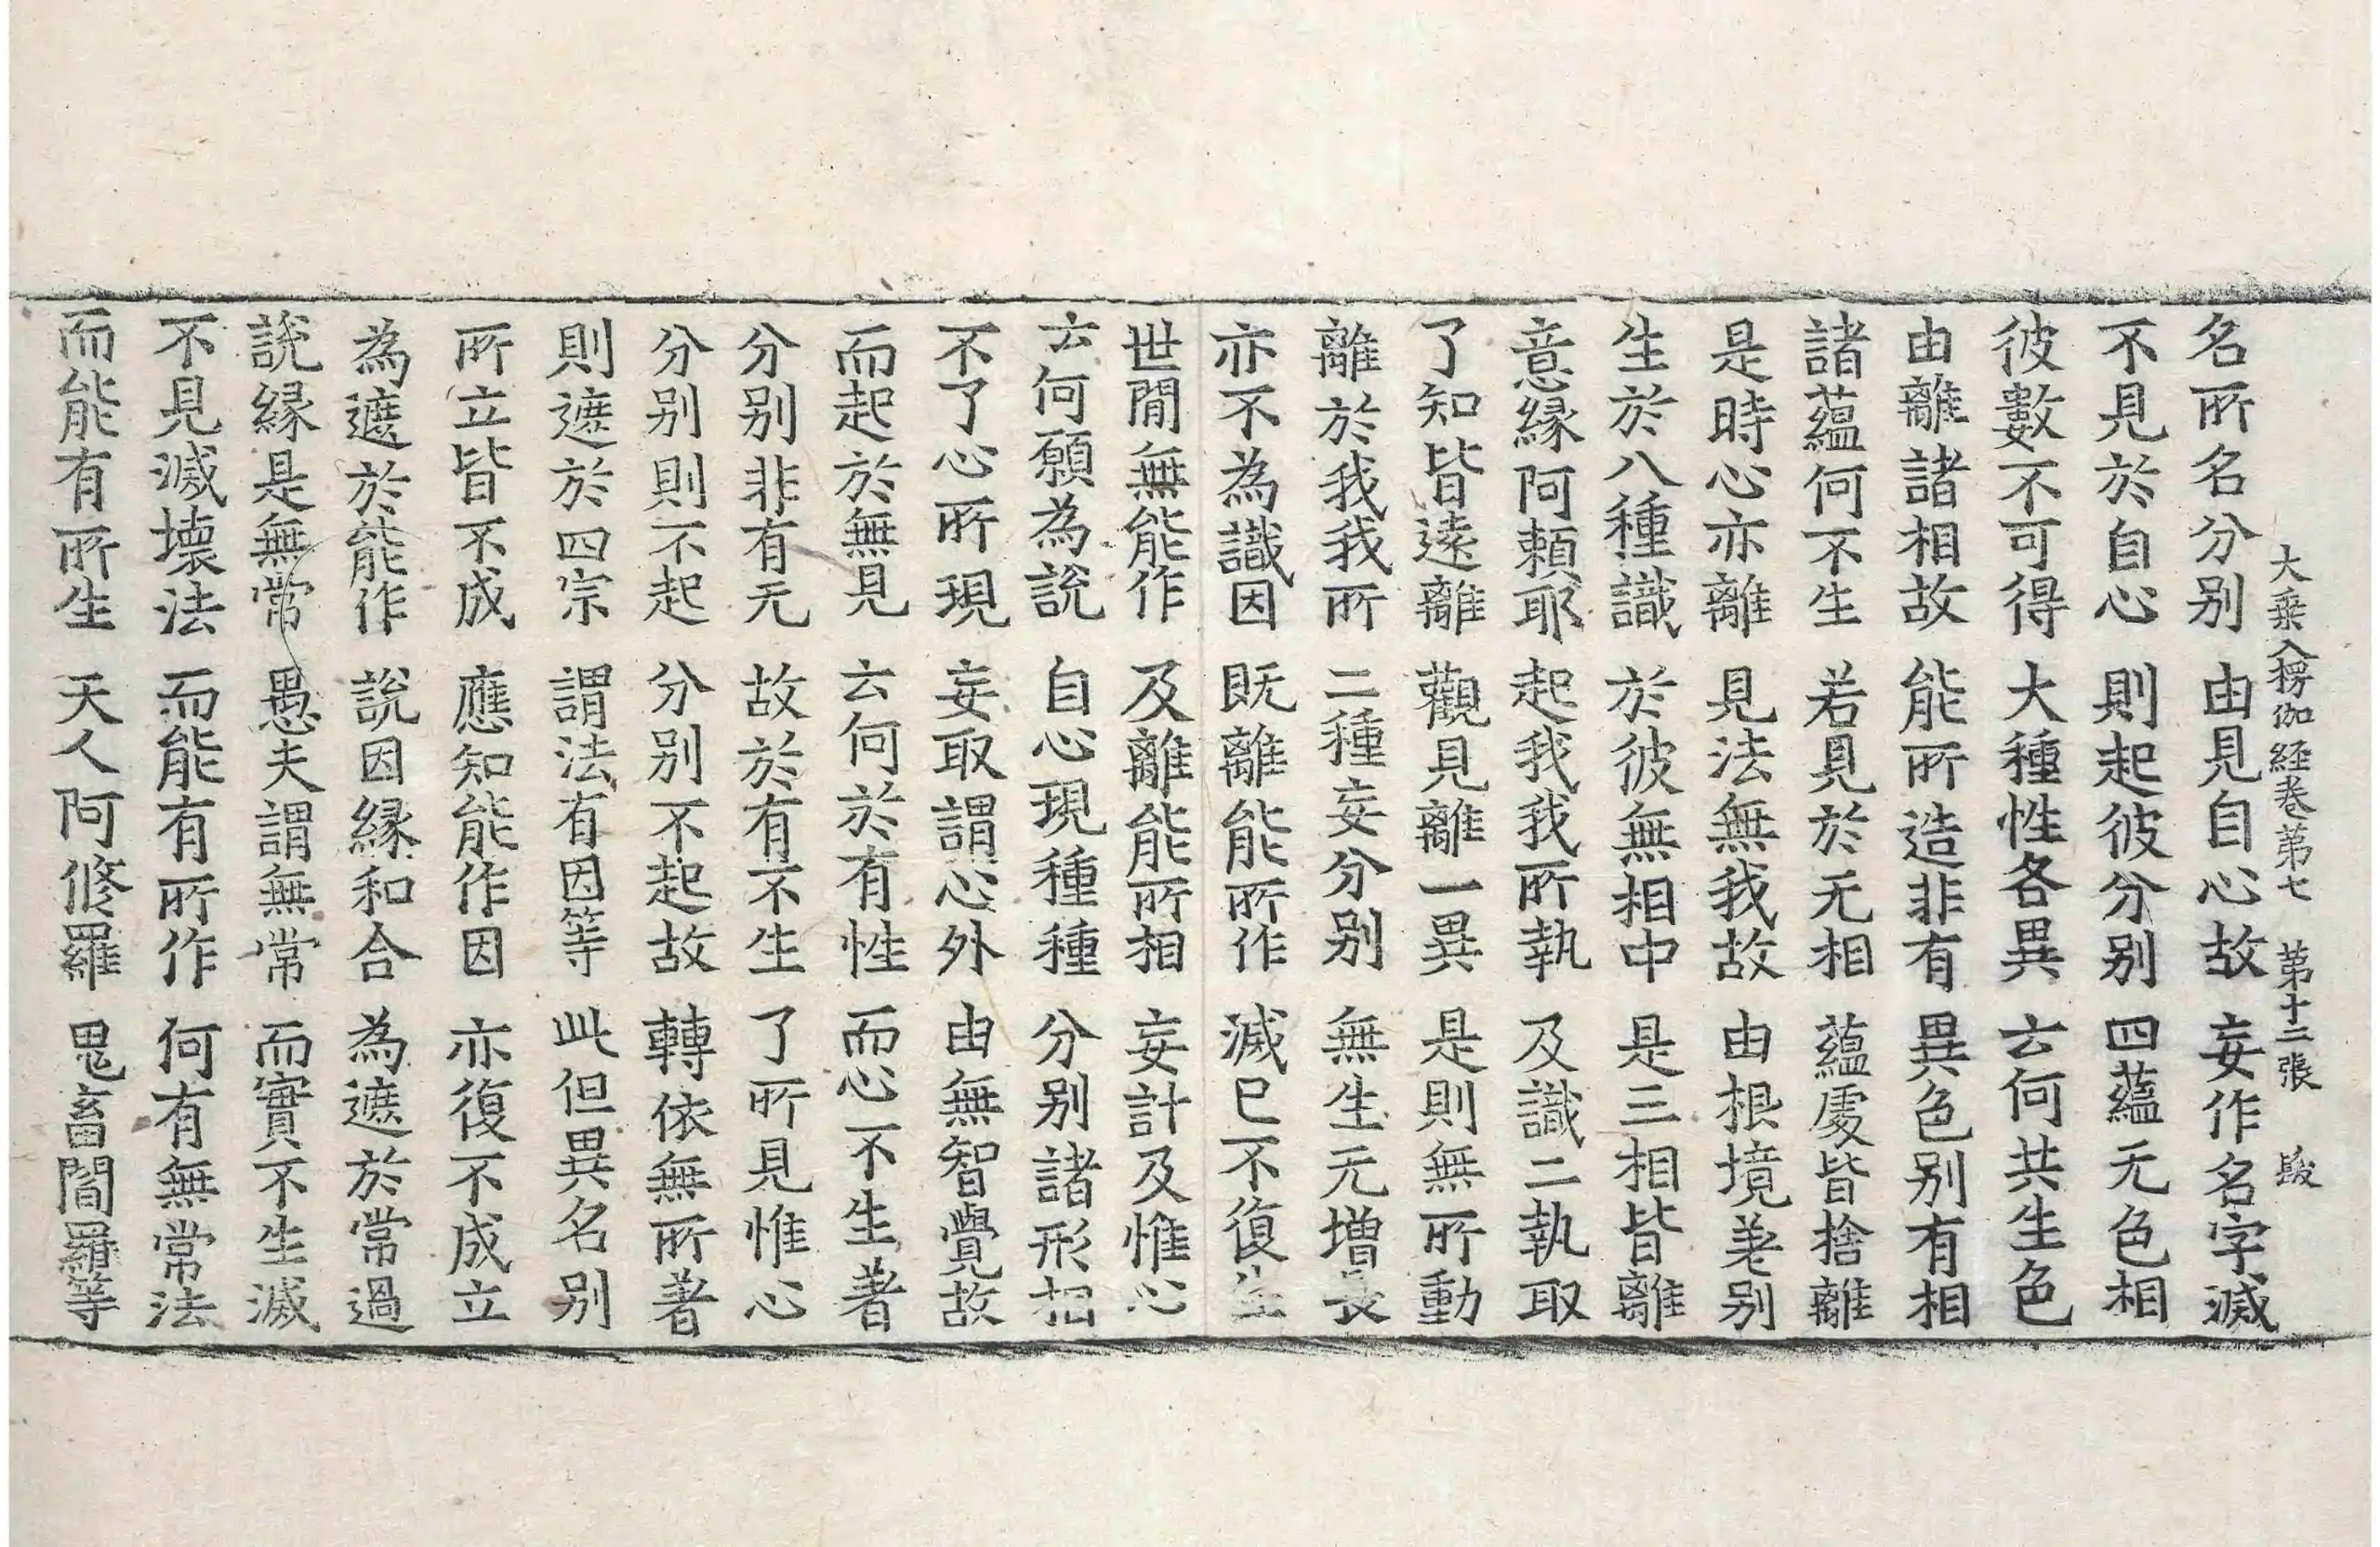 大乗入楞伽経卷第七　第十二張　跋
名所名分别　由見自心故　妄作名字滅
不見於自心　則起彼分别　四蘊无色相
彼數不可得　大種性各異　云何共生色
由離諸相故　能所造非有　異色别有相
諸蘊何不生　若見於无相　蘊處皆捨離
是時心亦離　見法無我故　由根境差别
生於八種識　於彼無相中　是三相皆離
意縁阿頼耶　起我我所執　及識二執取
了知皆遠離　觀見離一異　是則無所動
離於我我所　二種妄分别　無生无增長
亦不為識因　既離能所作　滅已不復生
世間無能作　及離能所相　妄計及惟心
云何願為說　自心現種種　分别諸形相
不了心所現　妄取謂心外　由無智覺故
而起於無見　云何於有性　而心不生著
分别非有无　故於有不生　了所見惟心
分别則不起　分别不起故　轉依無所著
則遮於四宗　謂法有因等　此但異名别
所立皆不成　應知能作因　亦復不成立
為遮於能作　說因縁和合　為遮於常過
說縁是無常　愚夫謂無常　而實不生滅
不見滅壞法　而能有所作　何有無常法
而能有所生　天人阿修羅　鬼畜閻羅等